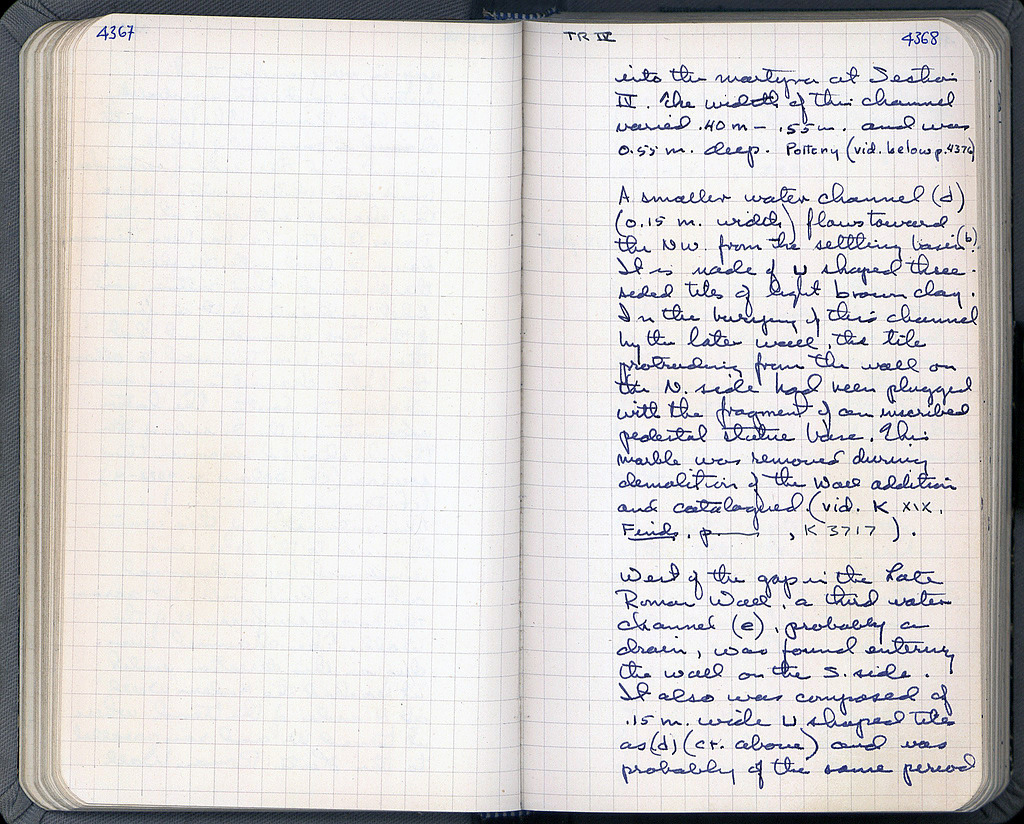 4367
TR IV
4368
into the martyra at Section
IV. The width of this channel
varied .40 m – .55 m. and was
0.55 m. deep. Pottery (vid. below p. 4376)
A smaller water channel (d)
(0.15 m. width) flows toward
the NW. from the settling basin (b).
It is made of U shaped three-
sided tiles of light brown clay.
In the burying of this channel
by the later wall, the tile
protruding from the wall on
the N. side had been plugged
with the fragment of an inscribed
pedestal statue base. This
marble was removed during
demolition of the wall addition
and catalogued (vid. K XIX,
Finds, p. , K 3717 ).
West of the gap in the Late
Roman Wall, a third water
channel (e), probably a
drain, was found entering
the wall on the S. side.
It also was composed of
.15 m. wide U shaped tiles
as (d) (cf. above) and was
probably of the same period